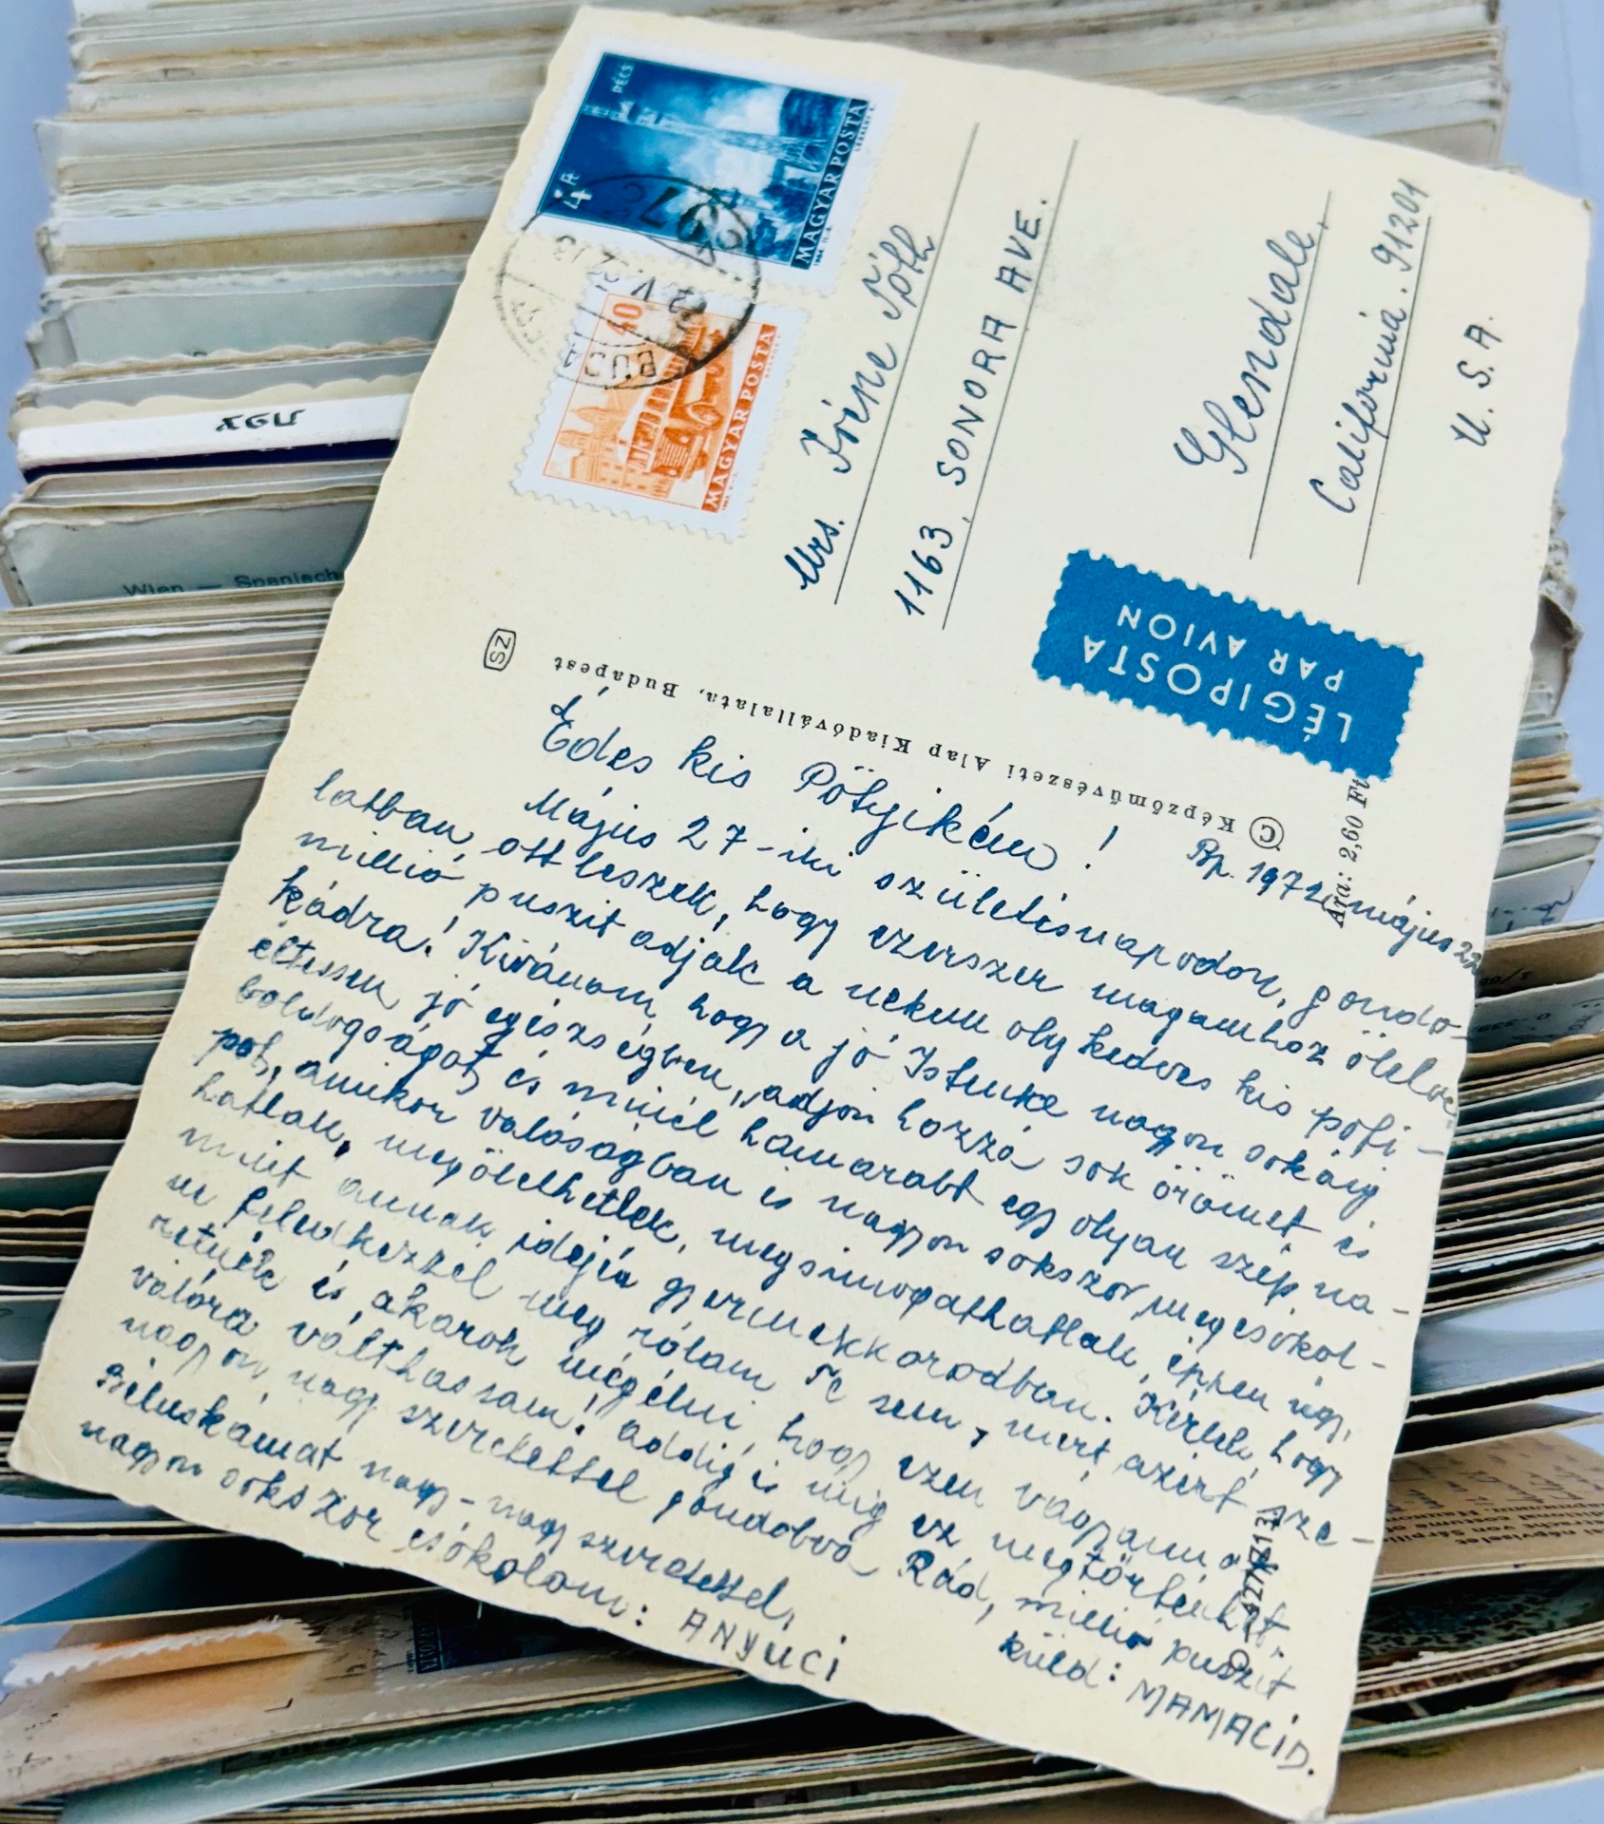 PÉCS
4 Ft
MAGYAR POSTA
40
MAGYAR POSTA
BUDA
72 V 22 13
Mrs. Irine Tóth
1163, SONORA AVE.
Glendale,
California. 91201
U. S. A.
LÉGIPOSTA
PAR AVION
SZ
© Képzőművészeti Alap Kiadóvállalata, Budapest
Ára: 2,60 Ft
Bp. 1972 május 22
Édes kis Pötyikém!
Május 27-iki születésnapodon, gondo-
latban ott leszek, hogy ezerszer magamhoz ölelve
millió puszit adjak a nekem oly kedves kis pofi-
kádra! Kivánom, hogy a jó Istenke nagyon sokáig
éltessen jó egészségben, adjon hozzá sok örömet és
boldogságot, és minél hamarabb egy olyan szép na-
pot, amikor valóságban is nagyon sokszor megcsókol-
hatlak, megölelhetlek, megsimogathatlak, éppen úgy,
mint annak idején gyermekkorodban. Kérlek, hogy
ne feledkezzél meg rólam Te sem, mert azért sze-
retnék és akarok mégélni, hogy ezen vágyam
valóra válthassam! addig is míg ez megtörténhet,
nagyon nagy szeretettel gondolva Rád, millió puszit
küld: MAMACID.
Béluskámat nagy-nagy szeretettel,
nagyon sokszor csókolom: ANYUCI
Wien — Spanisch